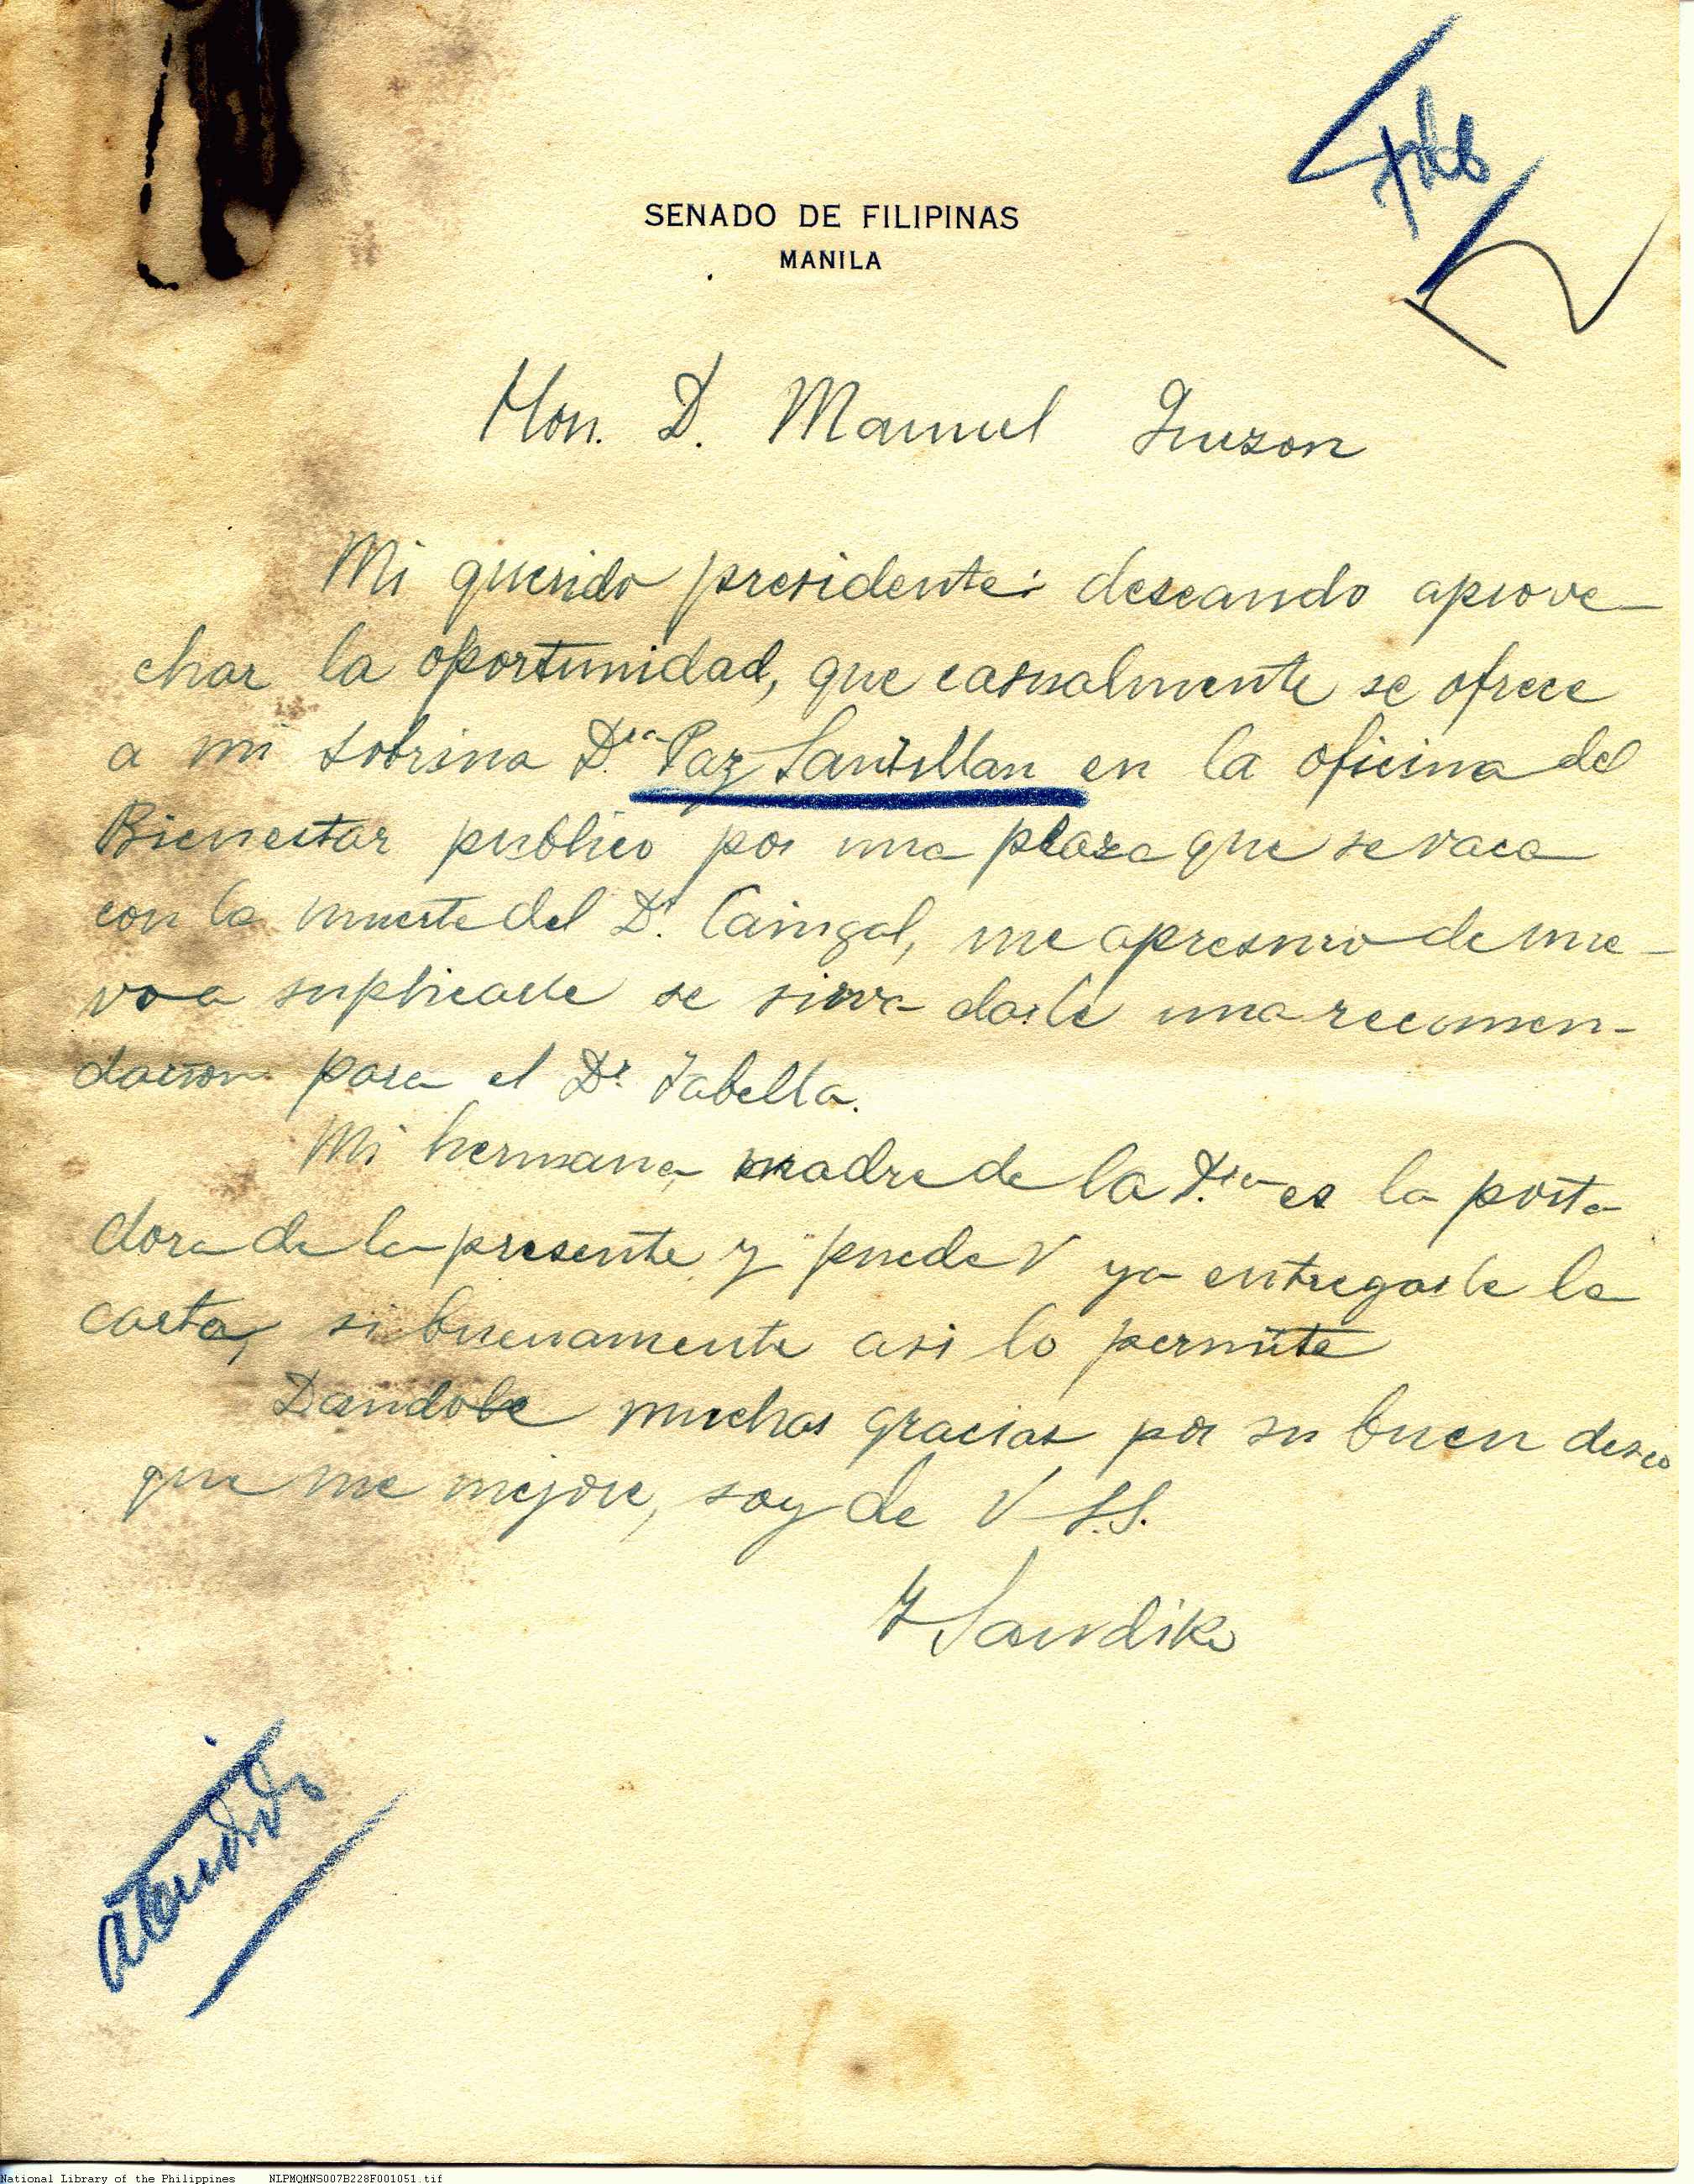 SENADO DE FILIPINAS
MANILA
Hon. D. Manuel Quezon
Mi querido presidente: deseando aprove-
char la oportunidad, que casualmente se ofrece
a mi sobrina D.ra Paz Santillan en la oficina del
Bienestar publico por una plaza que se vaca
con la muerte del Dr. Caingal, me apresuro de nue-
vo a suplicarle se sirva darle una recomen-
dacion para el Dr. Fabella.
Mi hermana, madre de la D.ra es la porta
dora de la presente y puede V ya entregarle la
carta, si buenamente asi lo permite
Dandole muchas gracias por su buen deseo
que me mejore, soy de V S.S.
T Sandiko
atendido
National Library of the Philippines NLPMQMNS007B228F001051.tif